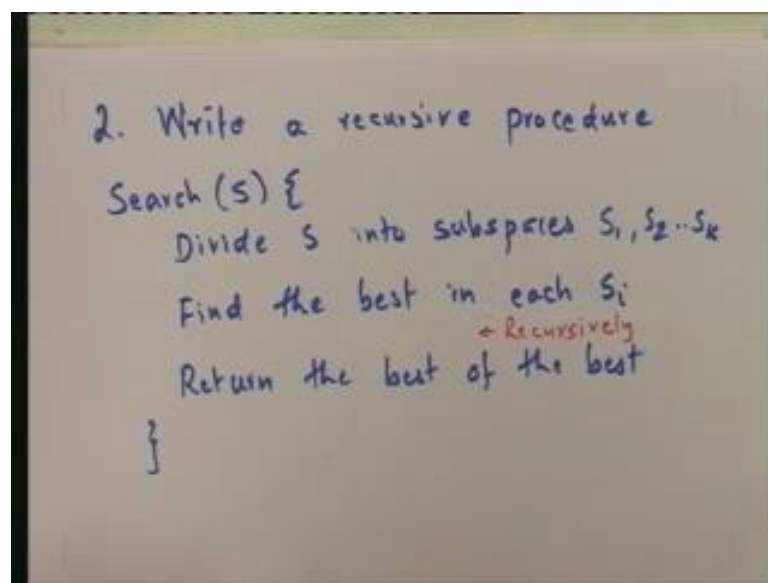 2. Write a recursive procedure
Search (S) {
Divide S into subspaces S₁, S₂..Sₖ
Find the best in each Sᵢ
← Recursively
Return the best of the best
}